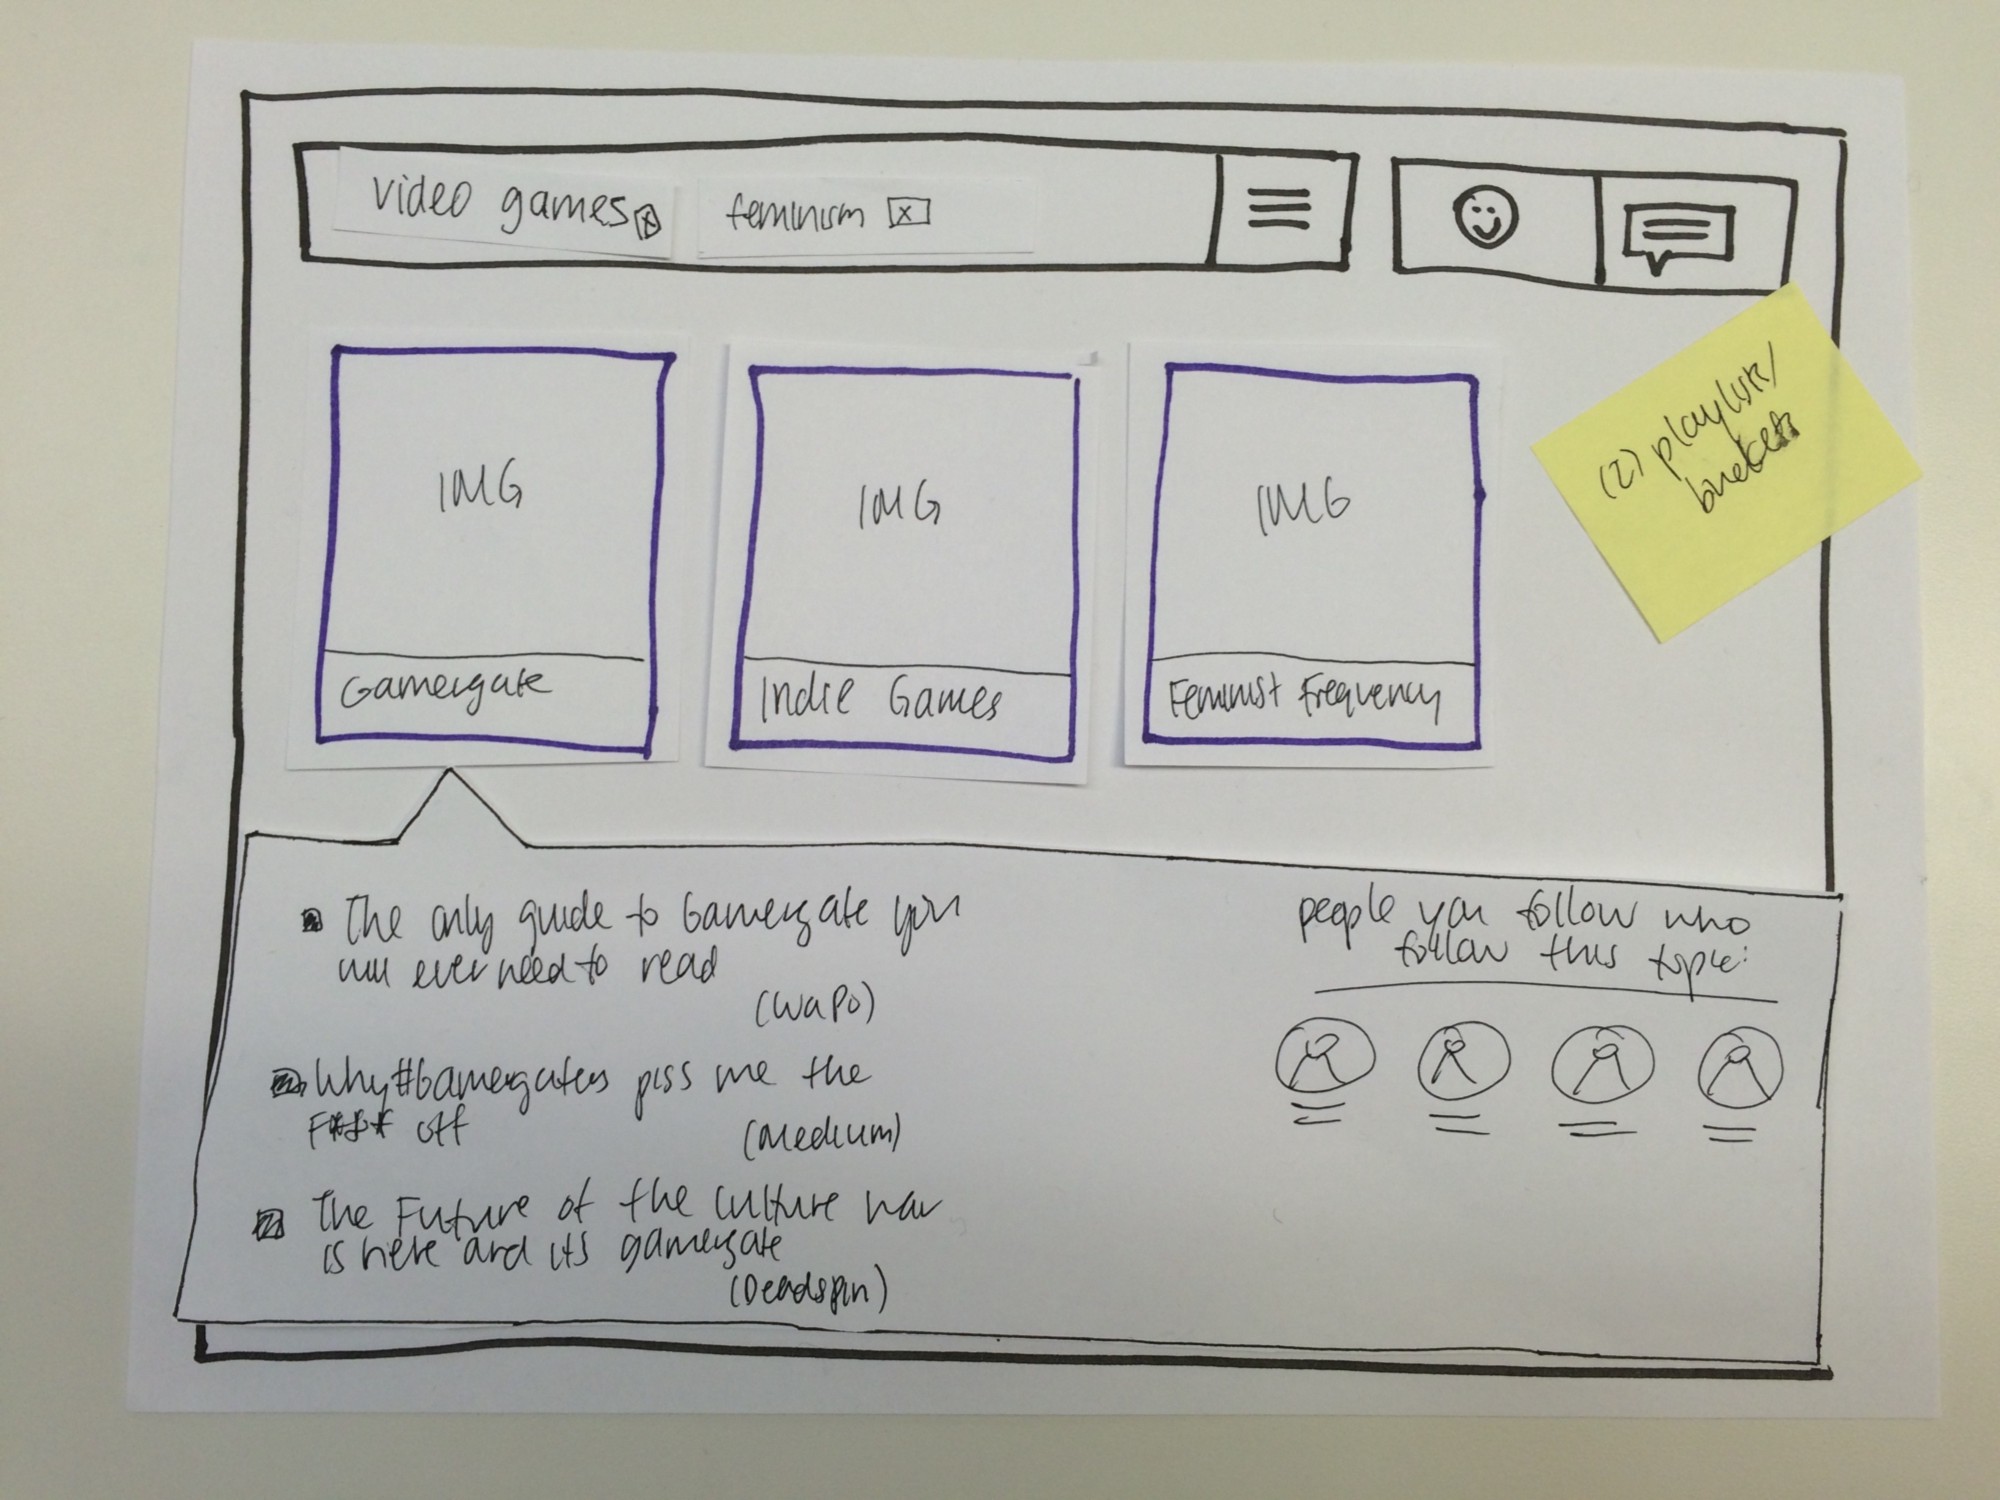 video games x
feminism x
(2) playlists/
buckets
IMG
IMG
IMG
Gamergate
Indie Games
Feminist Frequency
The only guide to Gamergate you
will ever need to read
(WaPo)
Why #Gamergaters piss me the
F*** off
(Medium)
The Future of the culture war
is here and its gamergate
(Deadspin)
people you follow who
follow this topic: